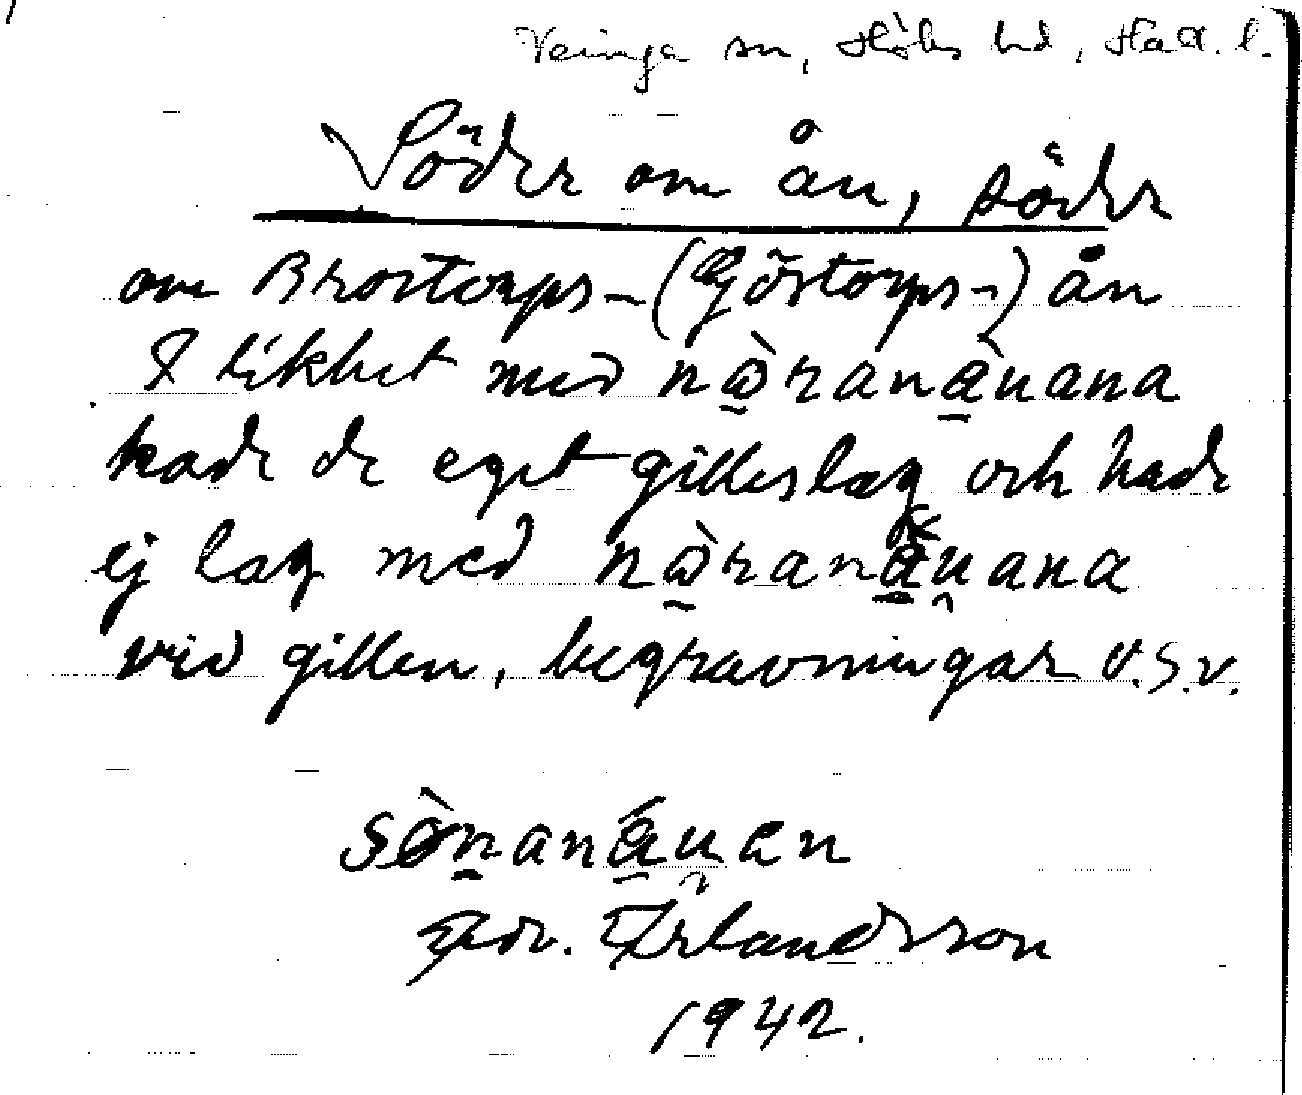 Veinge sn, Höks hd, Hall. l.
Söder om ån, söder
om Brostorps- (Göstorps-) ån
I likhet med nòranàuana
hade de eget gilleslag och hade
ej lag med nòranàuana
vid gillen, begravningar o.s.v.
sònanáuan
Erlandsson
1942.